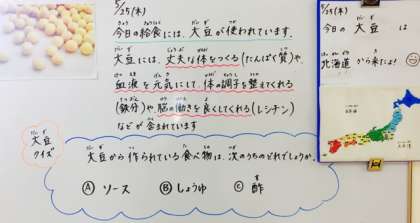 5/25(木)
今日の給食には、大豆が使われています。
大豆には、丈夫な体をつくる(たんぱく質)や、
血液を元気にして、体の調子を整えてくれる
(鉄分)や、脳の働きを良くしてくれる(レシチン)
などが含まれています
大豆
クイズ
大豆から作られている食べ物は、次のうちのどれでしょうか。
Ⓐ ソース Ⓑ しょうゆ Ⓒ 酢
5/25(木)
今日の 大豆 は
北海道から来たよ!